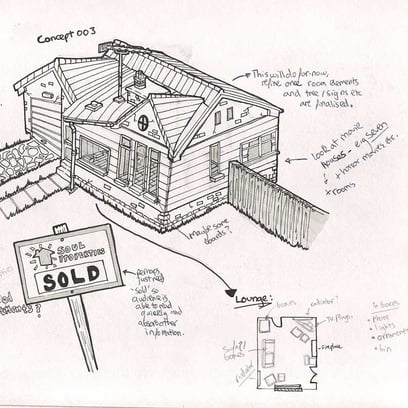 Concept 003
This will do for now,
refine once room elements
and tree / signs etc
are finalised.
look at movie
houses. eg seven
+ horror movies etc.
+ rooms
Maybe some
boards?
SOUL
PROPERTIES
SOLD
perhaps
just need
'Sold' so
audience is
able to read
quickly and
absorb other
information.
Lounge:
boxes
radiator?
TV Plugs.
fireplace
boxes
radiator
In boxes
• Phone
• lights
• ornaments
• bin